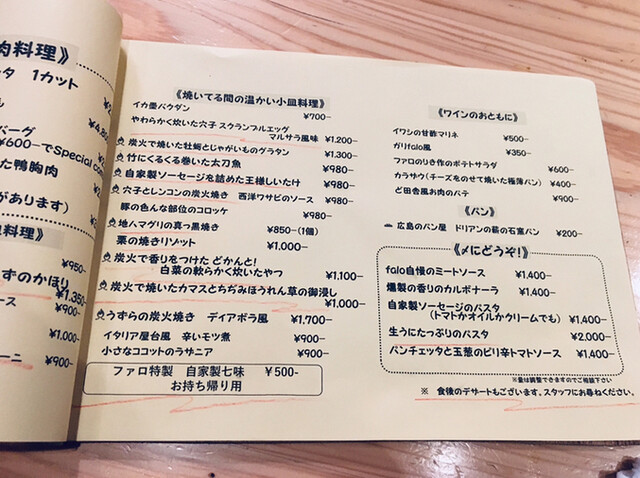 肉料理》
タ 1カット
も
バーグ
¥4,8
¥600-でSpecial
た鴨胸肉
があります）
料理》
¥950-
ずのかほり
¥1,350-
ース
¥900-
¥1,000-
ーニ
¥900-
《焼いてる間の温かい小皿料理》
イカ墨パウダン
¥700-
やわらかく炊いた穴子 スクランブルエッグ
マルサラ風味 ¥1,200-
炭火で焼いた牡蛎とじゃがいものグラタン ¥1,300-
竹にくるくる巻いた太刀魚 ¥980-
自家製ソーセージを詰めた王様しいたけ ¥980-
穴子とレンコンの炭火焼き 西洋ワサビのソース
¥980-
豚の色んな部位のコロッケ ¥980-
地ハマグリの真っ黒焼き ¥850-(1個)
栗の焼きリゾット ¥1,000-
炭火で香りをつけた どかんと!
白菜の軟らかく炊いたやつ ¥1,100-
炭火で焼いたカマスとちぢみほうれん草の御浸し
¥1,000-
うずらの炭火焼き ディアボラ風 ¥1,700-
イタリア屋台風 辛いモツ煮 ¥900-
小さなココットのラザニア ¥900-
ファロ特製 自家製七味 ¥500-
お持ち帰り用
《ワインのおともに》
イワシの甘酢マリネ ¥500-
ガリfalo風 ¥350-
ファロのりき作のポテトサラダ ¥600-
カラサウ（チーズをのせて焼いた極薄パン） ¥400-
ど田舎風お肉のパテ ¥900-
《パン》
広島のパン屋 ドリアンの薪の石窯パン ¥200-
《〆にどうぞ!》
falo自慢のミートソース ¥1,400-
燻製の香りのカルボナーラ ¥1,400-
自家製ソーセージのパスタ
（トマトかオイルかクリームでも） ¥1,400-
生うにたっぷりのパスタ ¥2,000-
パンチェッタと玉葱のピリ辛トマトソース ¥1,400-
※量は調整できますのでご相談下さい
※ 食後のデザートもございます、スタッフにお尋ねください。